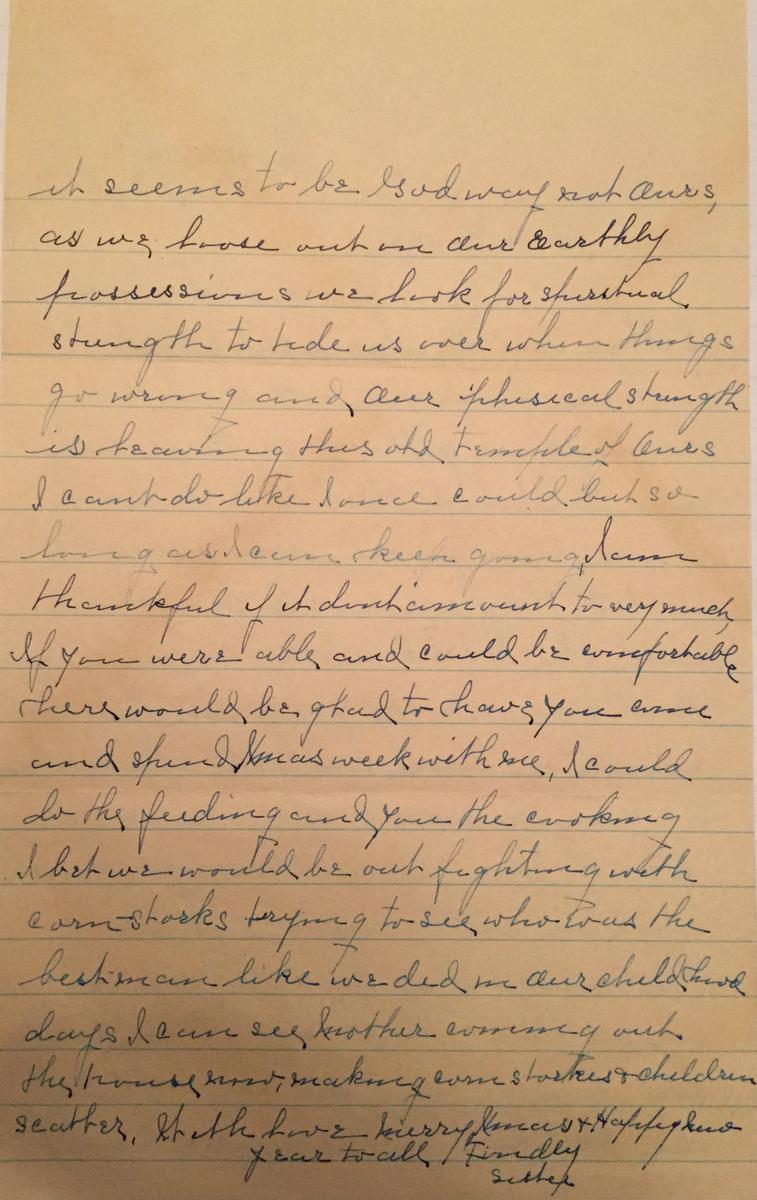 it seems to be God way not ours,
as we loose out on our Earthly
possessions we look for spirstual
strength to tide us over when things
go wrong and our phisical strength
is leaving this old temple of ours
I cant do like I once could but so
long as I can keep going, I am
thankful if it dont amount to very much,
If you were able and could be comfortable
here, would be glad to have you come
and spend Xmas week with me, I could
do the feeding and you the cooking
I bet we would be out fighting with
corn storks trying to see who was the
best man like we did in our childhood
days I can see Mother coming out
the house now, making corn storkes & children
scatter, With love Merry Xmas & Happy New
year to all Findly
Sister